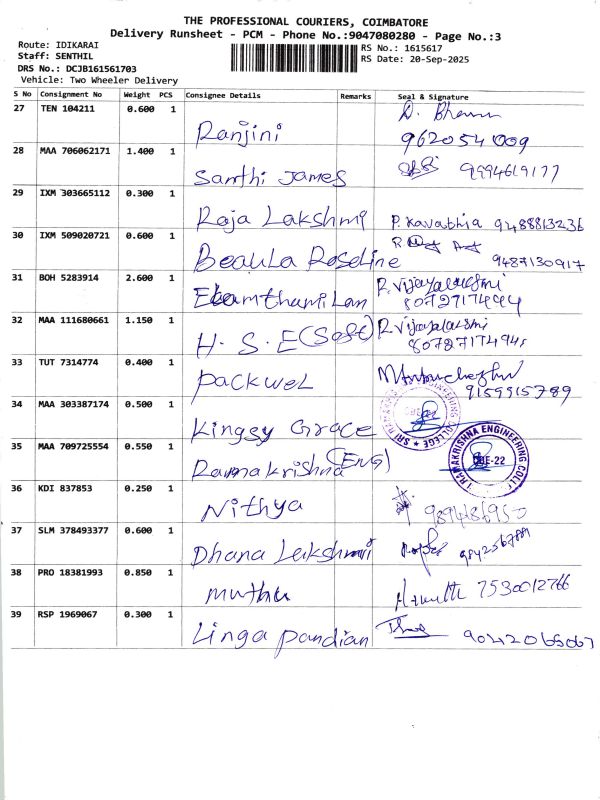 THE PROFESSIONAL COURIERS, COIMBATORE
Delivery Runsheet - PCM - Phone No.:9047080280 - Page No.:3
Route: IDIKARAI
Staff: SENTHIL
DRS No.: DCJB161561703
Vehicle: Two Wheeler Delivery
RS No.: 1615617
RS Date: 20-Sep-2025
S No Consignment No Weight PCS Consignee Details Remarks Seal & Signature
27 TEN 104211 0.600 1 Ranjini
962054009
28 MAA 706062171 1.400 1 Santhi James 9994619177
29 IXM 303665112 0.300 1 Raja Lakshmi P. Kavabhia 9488813236
30 IXM 509020721 0.600 1 Beaula Roseline 9487130917
31 BOH 5283914 2.600 1 Ekamthamilan R. Vijayalakshmi
8072717494
32 MAA 111680661 1.150 1 H. S. E (Soft) R. Vijayalakshmi
807271794
33 TUT 7314774 0.400 1 Packwel
9159915789
34 MAA 303387174 0.500 1 Kingsy Grace
35 MAA 709725554 0.550 1 Ramakrishna (ENG)
RAMAKRISHNA ENGINEERING COLL
CBE-22
36 KDI 837853 0.250 1 Nithya 9894186950
37 SLM 378493377 0.600 1 Dhana Lekshmi 9842567889
38 PRO 18381993 0.850 1 Muthu 7530012766
39 RSP 1969067 0.300 1 Linga Pandian 9042206506